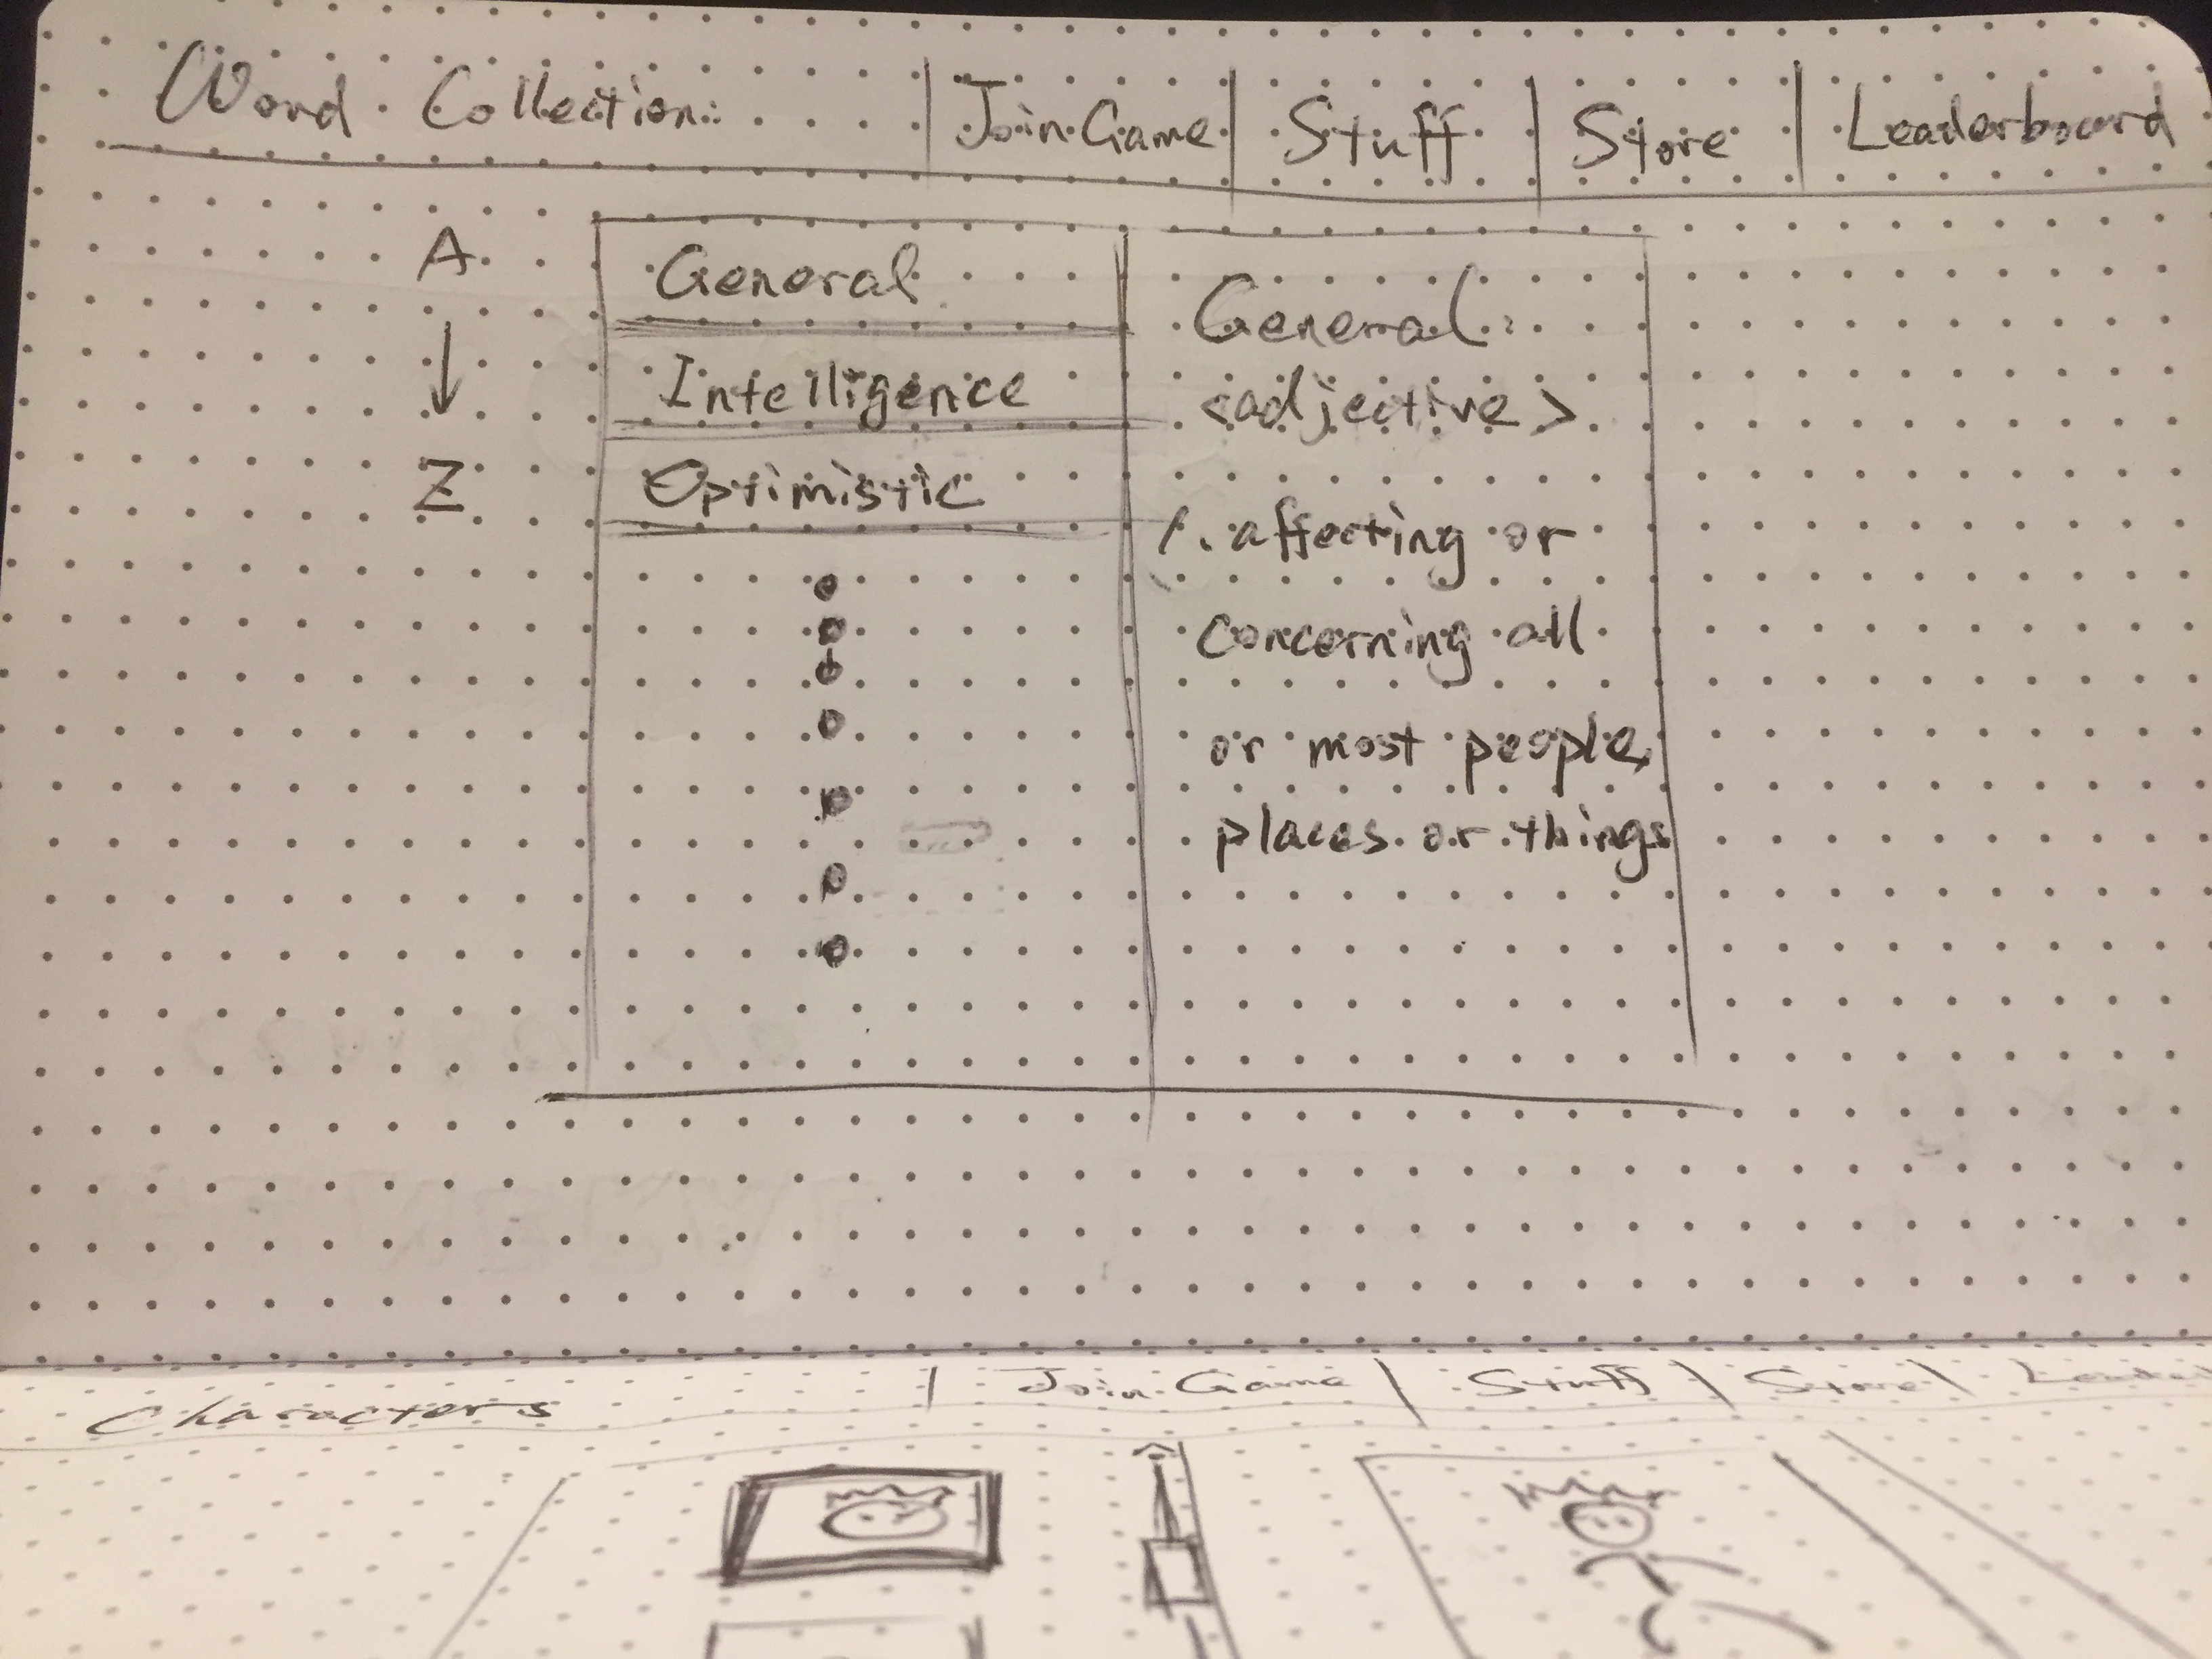 Word Collection:
Join Game
Stuff
Store
Leaderboard
A
Z
General
Intelligence
Optimistic
General:
<adjective>
1. affecting or
concerning all
or most people,
places or things
Characters
Join Game
Stuff
Store